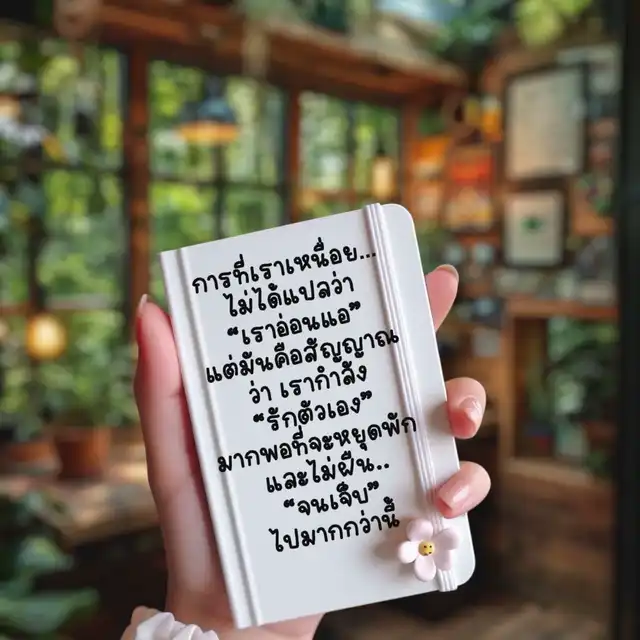 การที่เราเหนื่อย...
ไม่ได้แปลว่า
“เราอ่อนแอ”
แต่มันคือสัญญาณ
ว่า เรากำลัง
“รักตัวเอง”
มากพอที่จะหยุดพัก
และไม่ฝืน..
“จนเจ็บ”
ไปมากกว่านี้